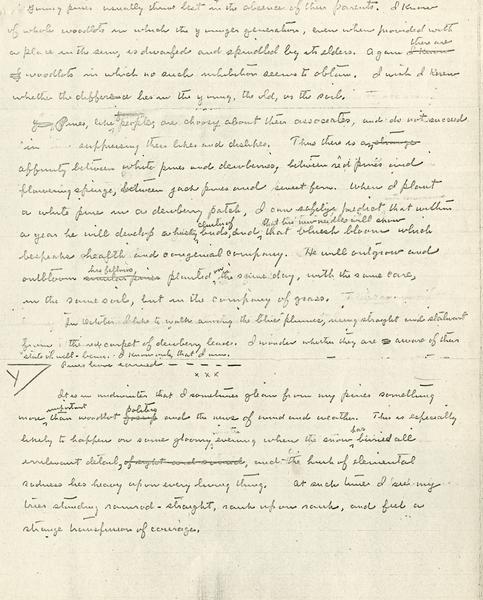 Young pines usually thrive best in the absence of their parents. I know
of whole woodlots in which the younger generation, even when provided with
a place in the sun, is dwarfed and spindled by its elders. Again there are
woodlots in which no such inhibition seems to obtain. I wish I knew
whether the difference lies in the young, the old, or the soil.
Pines, like people, are choosy about their associates, and do not succeed
in suppressing their likes and dislikes. Thus there is a
affinity between white pines and dewberries, between red pines and
flowering spurge, between jack pines and sweet fern. When I plant
a white pine in a dewberry patch, I can safely predict that within
a year he will develop a husky cluster of buds, and that his new needles will show that bluish bloom which
bespeaks health and congenial company. He will outgrow and
outbloom his fellows, planted on the same day, with the same care,
in the same soil, but in the company of grass.
In October I like to walk among the blue plumes, rising straight and stalwart
from the red carpet of dewberry leaves. I wonder whether they are aware of their
state of well-being. I know only that I am.
Pines have earned
x x x
It is in midwinter that I sometimes glean from my pines something
more important than woodlot politics and the news of wind and weather. This is especially
likely to happen on some gloomy evening when the snow has buried all
irrelevant detail, and the hush of elemental
sadness lies heavy upon every living thing. At such times I see my
trees standing ramrod-straight, rank upon rank, and feel a
strange transfusion of courage.